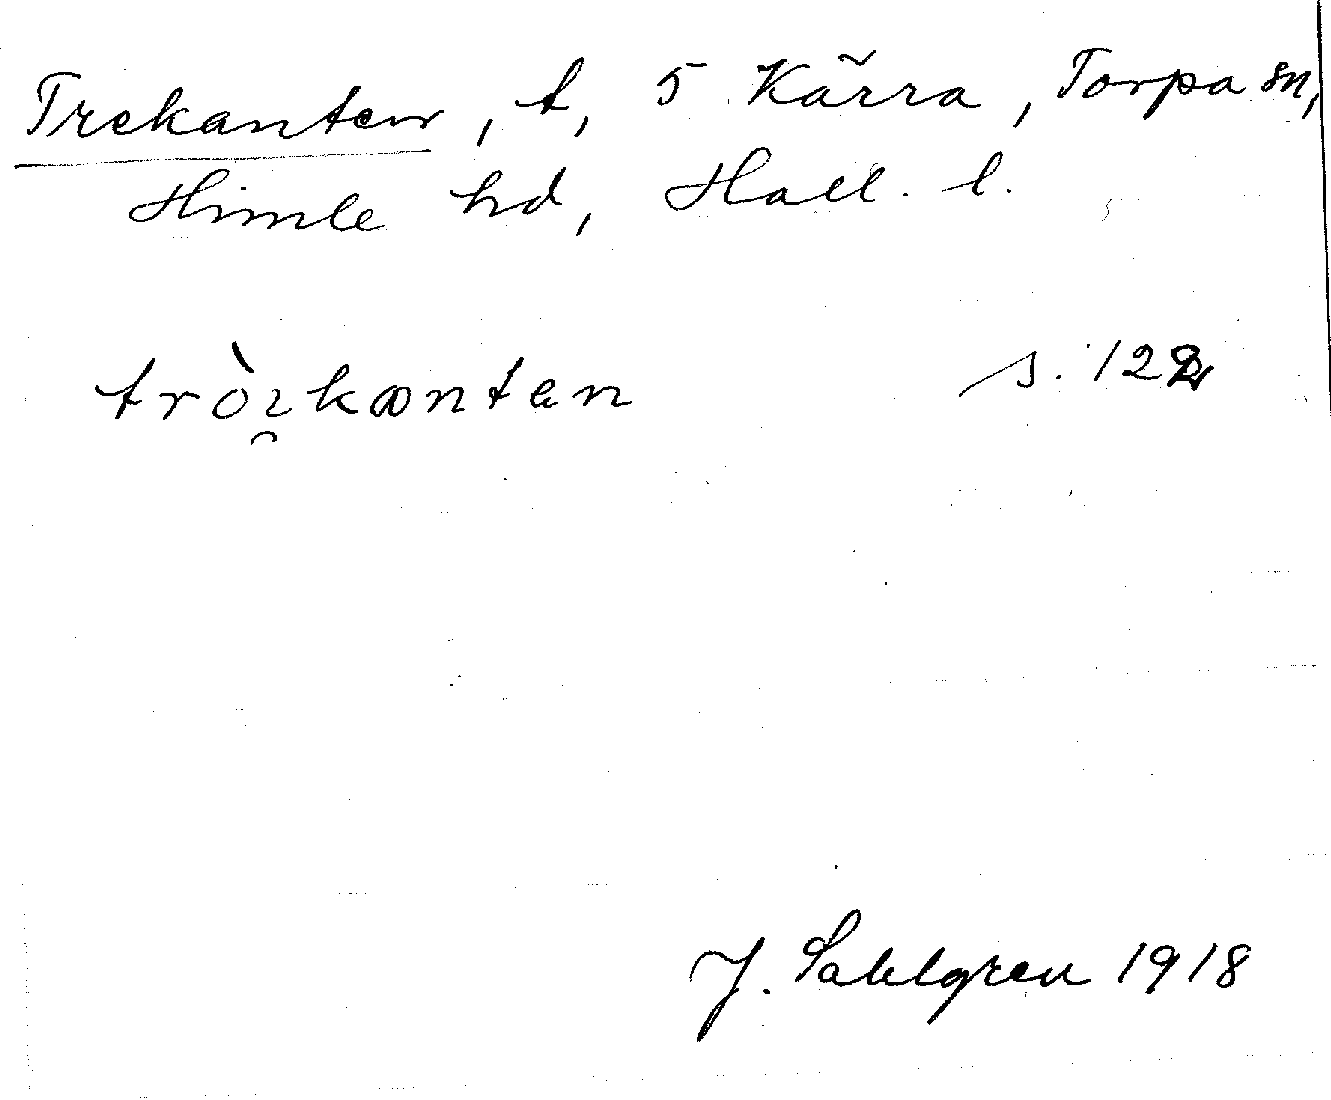 Trekanten, t, 5 Kärra, Torpa sn,
Himle hd, Hall. l.
tròzkanten s. 122
J. Sahlgren 1918